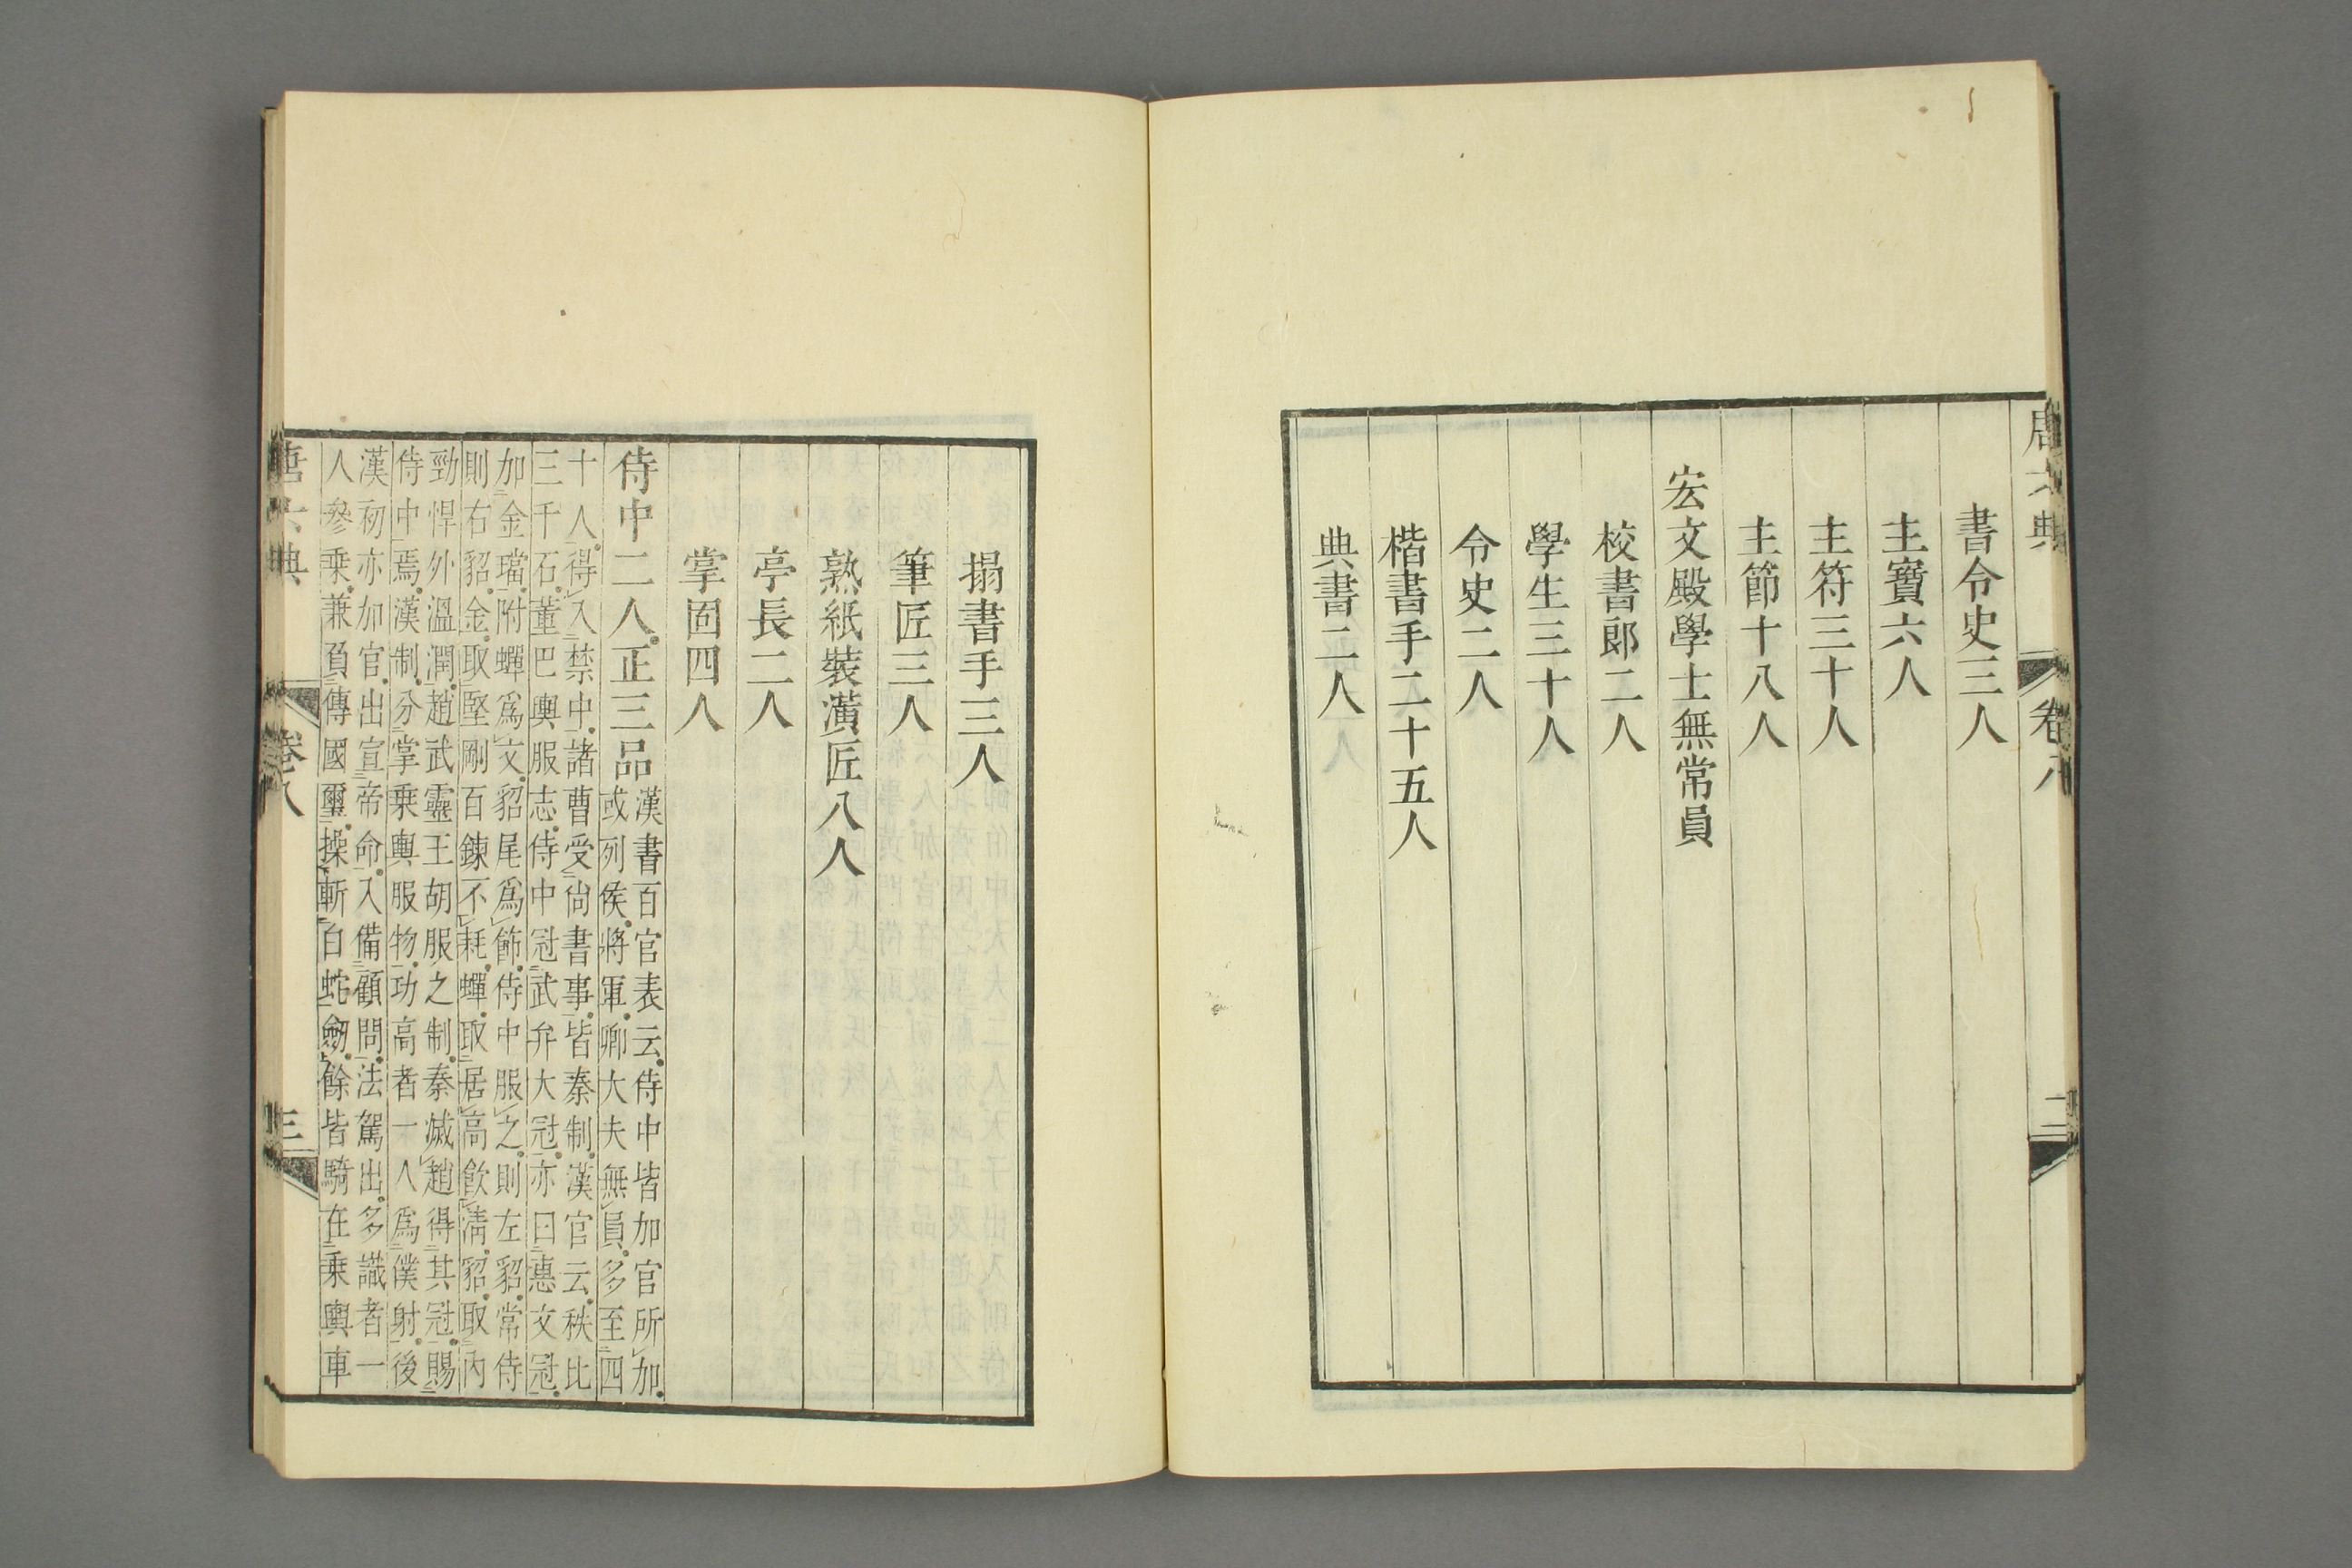 唐六典 卷八 二
書令史三人
主寶六人
主符三十人
主節十八人
宏文殿學士無常員
校書郎二人
學生三十人
令史二人
楷書手二十五人
典書二人
搨書手三人
筆匠三人
熟紙裝潢匠八人
亭長二人
掌固四人
侍中二人。正三品
漢書百官表云。侍中皆加官所加。
或列侯。將軍。卿大夫無員。多至四
十人。得入禁中。諸曹受尙書事。皆秦制。漢官云。秩比
三千石。董巴輿服志。侍中冠武弁大冠。亦曰惠文冠。
加金璫。附蟬爲文。貂尾爲飾。侍中服之。則左貂。常侍
則右貂。金。取堅剛百鍊不耗。蟬。取居高飮淸。貂。取內
勁悍外溫潤。趙武靈王胡服之制。秦滅趙得其冠。賜
侍中焉。漢制。分掌乘輿服物。功高者一人爲僕射。後
漢初亦加官。出宣帝命。入備顧問。法駕出。多識者一
人參乘。兼負傳國璽。操斬白蛇劒。餘皆騎在乘輿車
唐六典 卷八 三